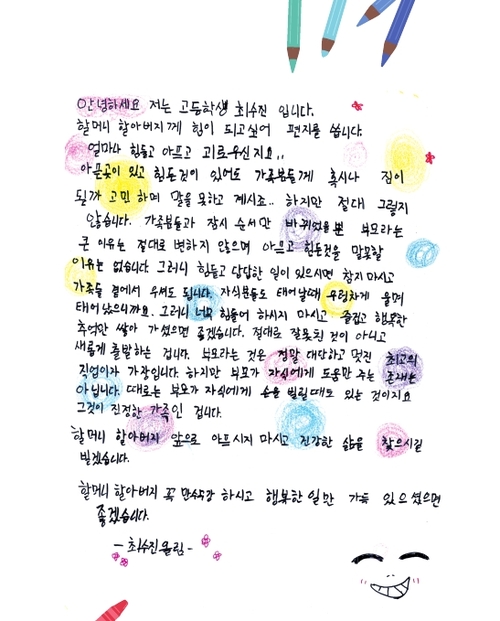 안녕하세요 저는 고등학생 최수진 입니다.
할머니 할아버지께 힘이 되고싶어 편지를 씁니다.
얼마나 힘들고 아프고 괴로우신지요..
아픈곳이 있고 힘든것이 있어도 가족분들께 혹시나 짐이
될까 고민하며 말을 못하고 계시죠.. 하지만 절대 그렇지
않습니다. 가족분들과 잠시 순서만 바뀌었을 뿐 부모라는
큰 이유는 절대로 변하지 않으며 아프고 힘든것을 말못할
이유는 없습니다. 그러니 힘들고 답답한 일이 있으시면 참지마시고
가족들 곁에서 우셔도 됩니다. 자식분들도 태어날때 우렁차게 울며
태어났으니까요. 그러니 너무 힘들어 하시지 마시고 즐겁고 행복한
추억만 쌓아 가셨으면 좋겠습니다. 절대로 잘못된 것이 아니고
새롭게 출발하는 겁니다. 부모라는 것은 정말 대단하고 멋진 최고의
직업이자 가장입니다. 하지만 부모가 자식에게 도움만 주는 존재는
아닙니다. 때로는 부모가 자식에게 손을 빌릴때도 있는 것이지요
그것이 진정한 가족인 겁니다.
할머니 할아버지 앞으로 아프시지 마시고 건강한 삶을 찾으시길
빌겠습니다.
할머니 할아버지 꼭 만수무강 하시고 행복한 일만 가득 있으셨으면
좋겠습니다.
- 최수진 올림 -